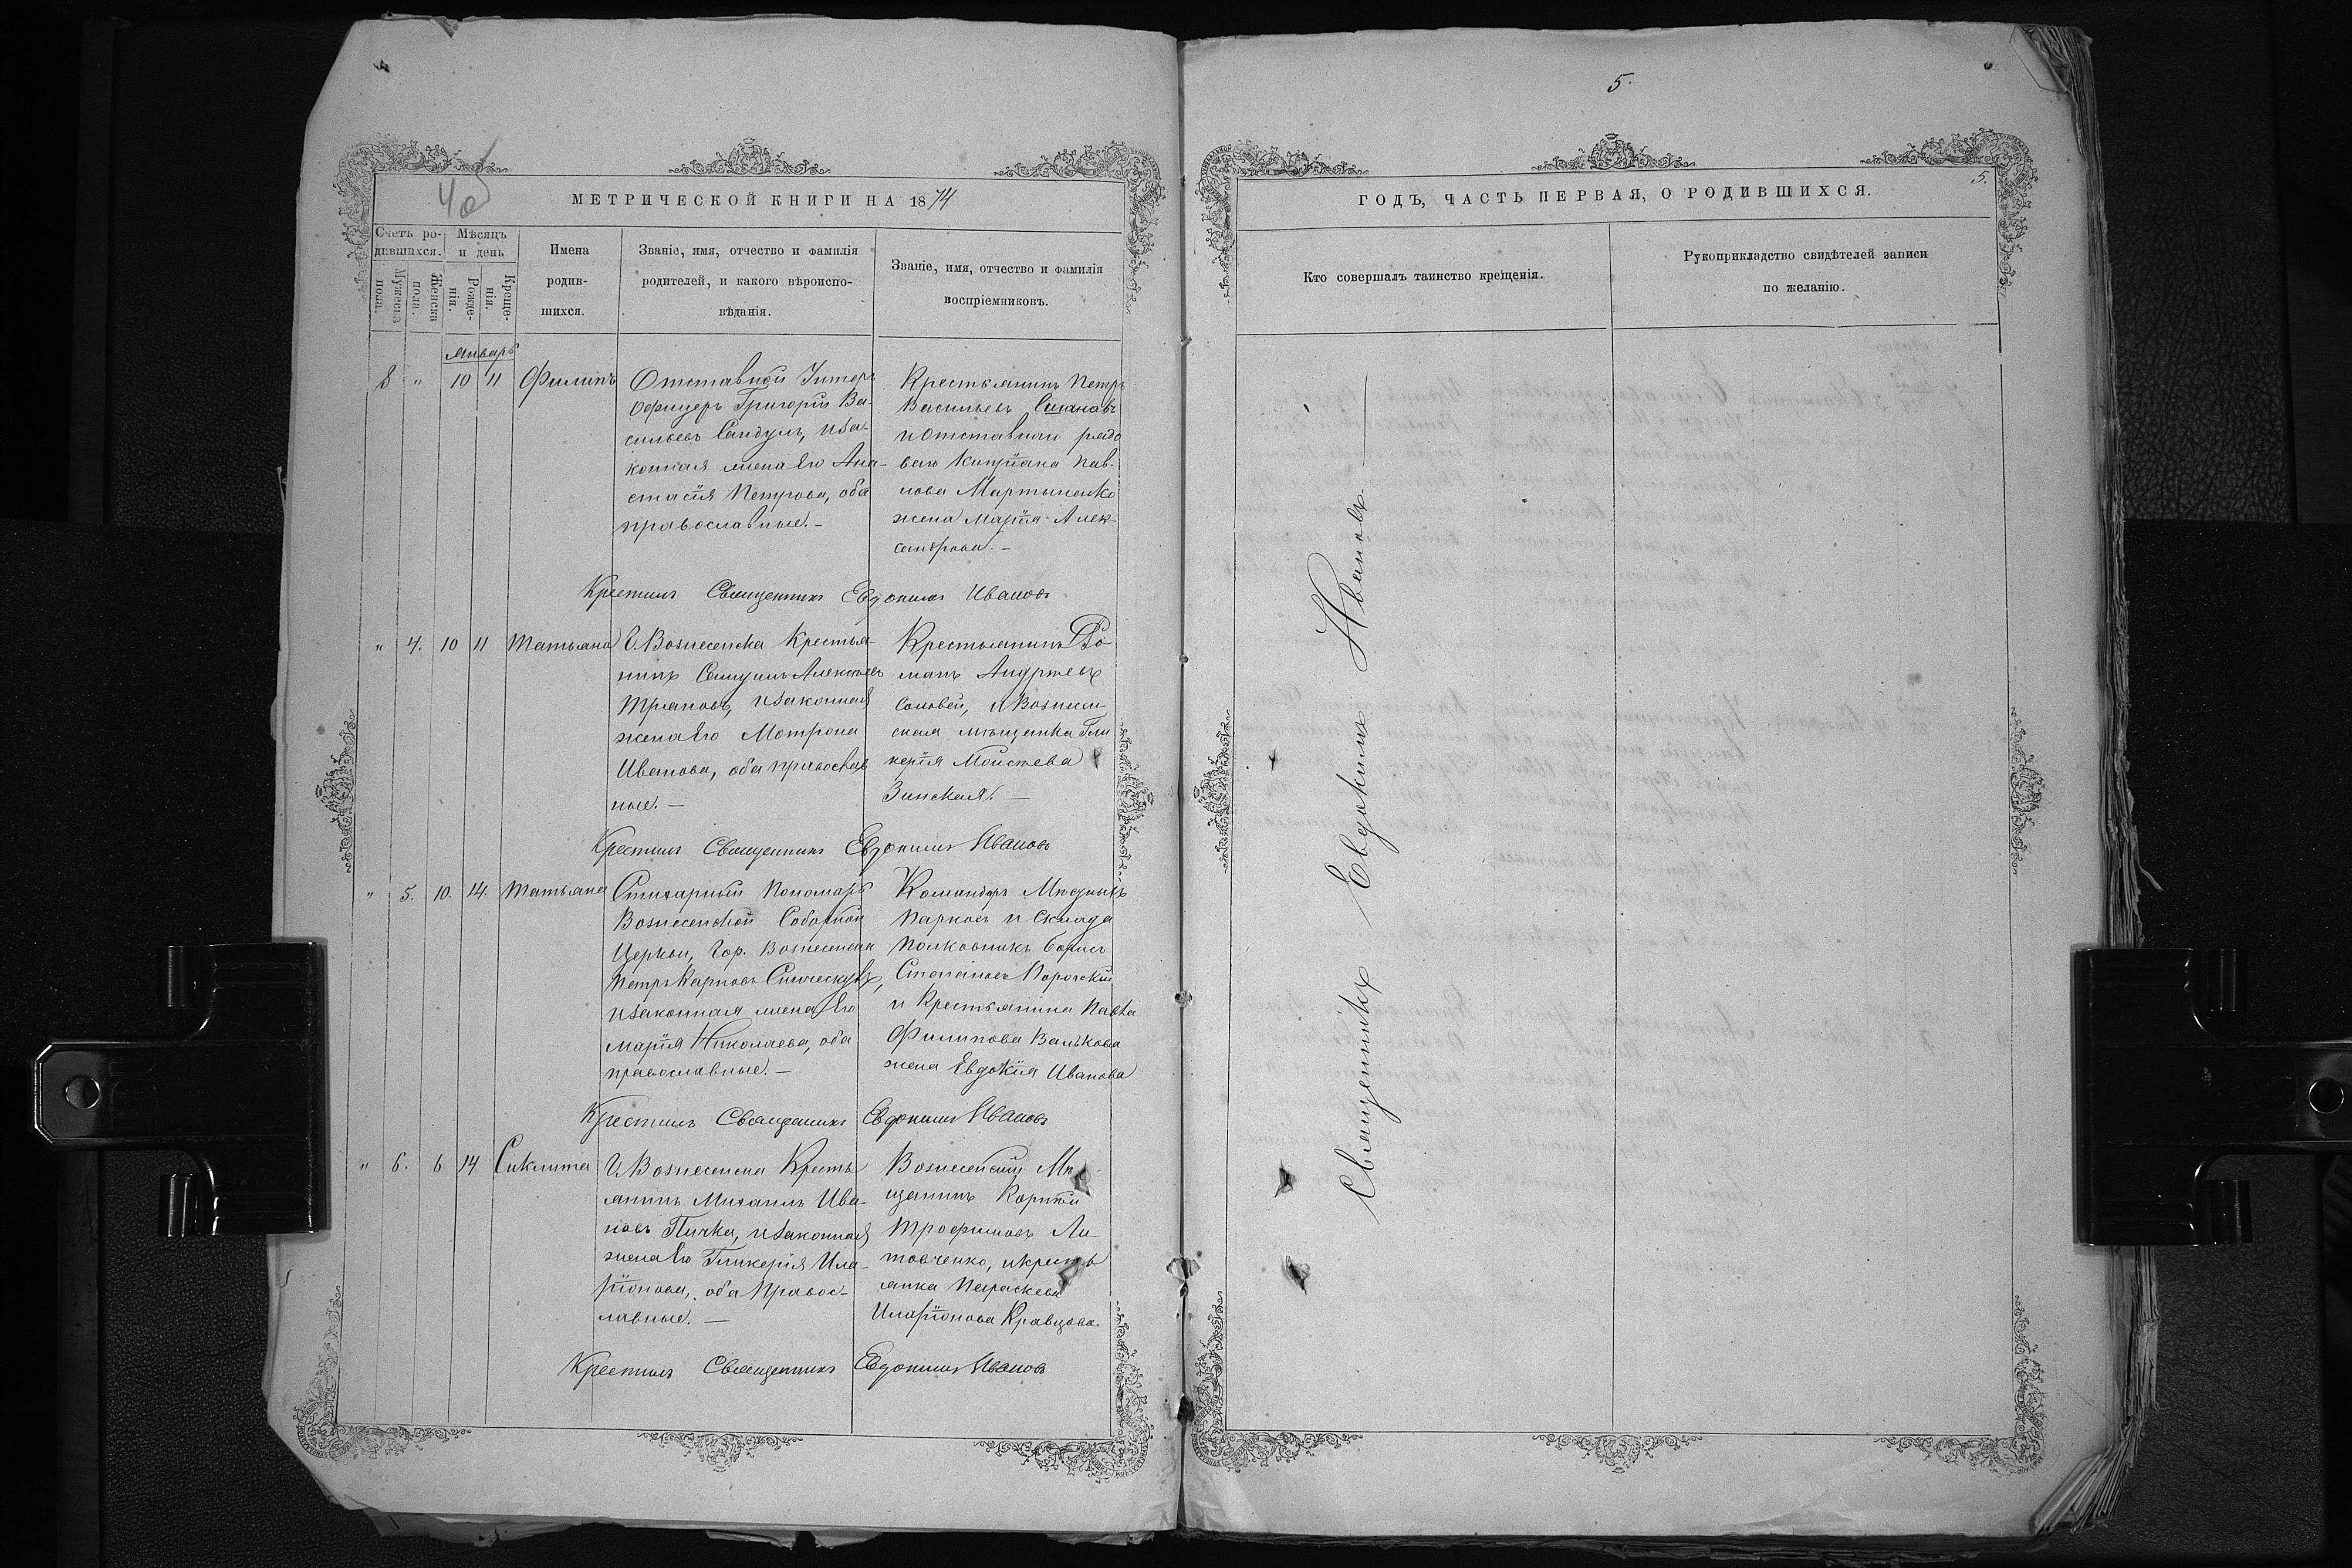 5.
40
5.
МЕТРИЧЕСКОЙ КНИГИ НА 1874
ГОДЪ, ЧАСТЬ ПЕРВАЯ, О РОДИВШИХСЯ.
Счетъ ро-
дившихся.
Мужеска
пола.
Женска
пола.
Мѣсяцъ
и день
Рожде-
нія.
Креще-
нія.
Имена
родив-
шихся.
Званіе, имя, отчество и фамилія
родителей, и какого вѣроиспо-
вѣданія.
Званіе, имя, отчество и фамилія
воспріемниковъ.
Кто совершалъ таинство крещенія.
Рукоприкладство свидѣтелей записи
по желанію.
Январь
8 " 10 11 Филипъ
Отставной Унтеръ
Офицеръ Григорій Ва-
сильевъ Сандулъ, и за-
конная жена Его Ана-
стасія Петрова, оба
православные.-
Крестьянинъ Петръ
Васильевъ
и Отставнаго рядо
ваго Кипріана Пав-
лова Мартыненко
жена Марія Алек-
сандрова.-
Крестилъ Священникъ Евдокимъ Ивановъ
" 4. 10 11 Татьяна
Г. Вознесенска Крестья-
нинъ Самуилъ Алексѣевъ
и законная
жена Его Мотрона
Иванова, оба православ
ные.-
Крестьянинъ Ро
манъ Андреевъ
Соловей, и Вознесен
ская мѣщанка Гли
керія Моисеева
Зинская.-
Крестилъ Священникъ Евдокимъ Ивановъ
" 5. 10. 14. Татьяна
Стихарный Пономарь
Вознесенской Соборной
Церкви, Гор. Вознесенска
Петръ Карповъ
и законная жена Его
Марія Николаева, оба
православные.-
Командиръ
Парковъ и Склада
Полковникъ Борисъ
Степановъ
и Крестьянина Павла
Филипова Валькова
жена Евдокія Иванова
Крестилъ Священникъ Евдокимъ Ивановъ
" 6. 6 14 Сиклита
Г. Вознесенска Кресть
янинъ Михаилъ Ива-
новъ Пичка, и законная
жена Его Гликерія Ила-
ріонова, оба Правос-
лавные.-
Вознесенскій Мѣ-
щанинъ Корнѣй
Трофимовъ Ли-
товченко, и кресть
янка Параскева
Иларіонова Кравцова.
Крестилъ Священникъ Евдокимъ Ивановъ
Священникъ Евдокимъ Ивановъ